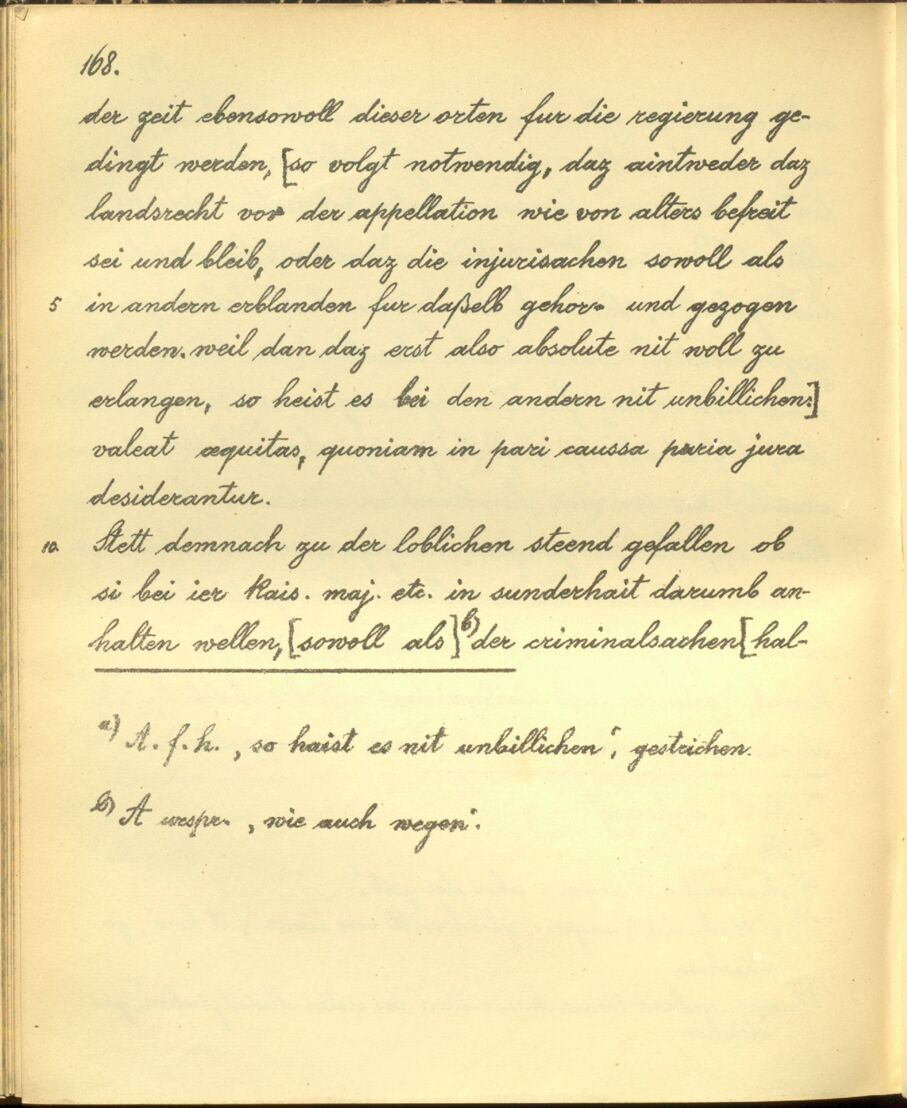 168.
der zeit ebensowoll dieser orten fur die regierung ge-
dingt werden, [so volgt notwendig, daz aintweder daz
landsrecht vor der appellation wie von alters befreit
sei und bleib, oder daz die injurisachen sowoll als
5 in andern erblanden fur daßelb gehor- und gezogen
werden. weil dan daz erst also absolute nit woll zu
erlangen, so heist es bei den andern nit unbillichen:]
valeat æquitas, quoniam in pari caussa paria jura
desiderantur.
10. Stett demnach zu der loblichen steend gefallen ob
si bei ier kais. maj. etc. in sunderhait darumb an-
halten wellen, [sowoll als] b) der criminalsachen [hal-
a) A. f. h. „so haist es nit unbillichen“, gestrichen.
b) A urspr. „wie auch wegen“.